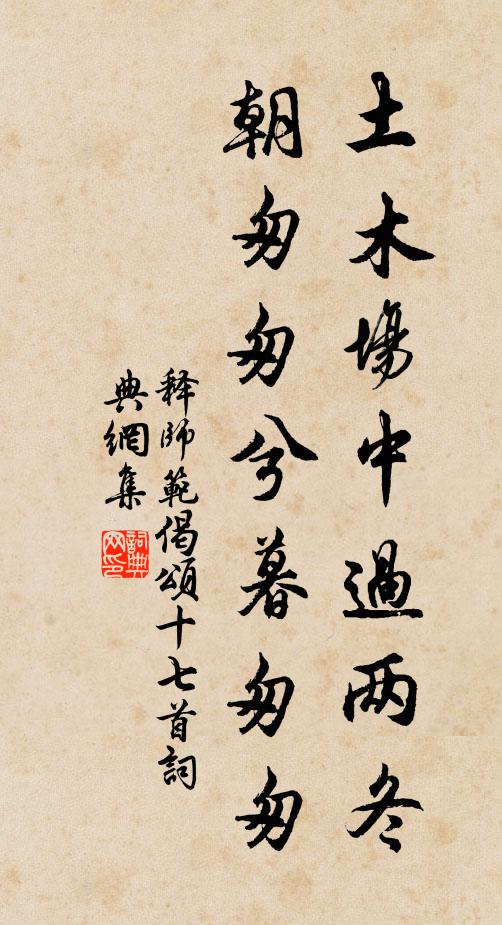 土木場中過两冬
朝匆匆兮暮匆匆
释師範偈頌十七首詞
典網集
詞典网印